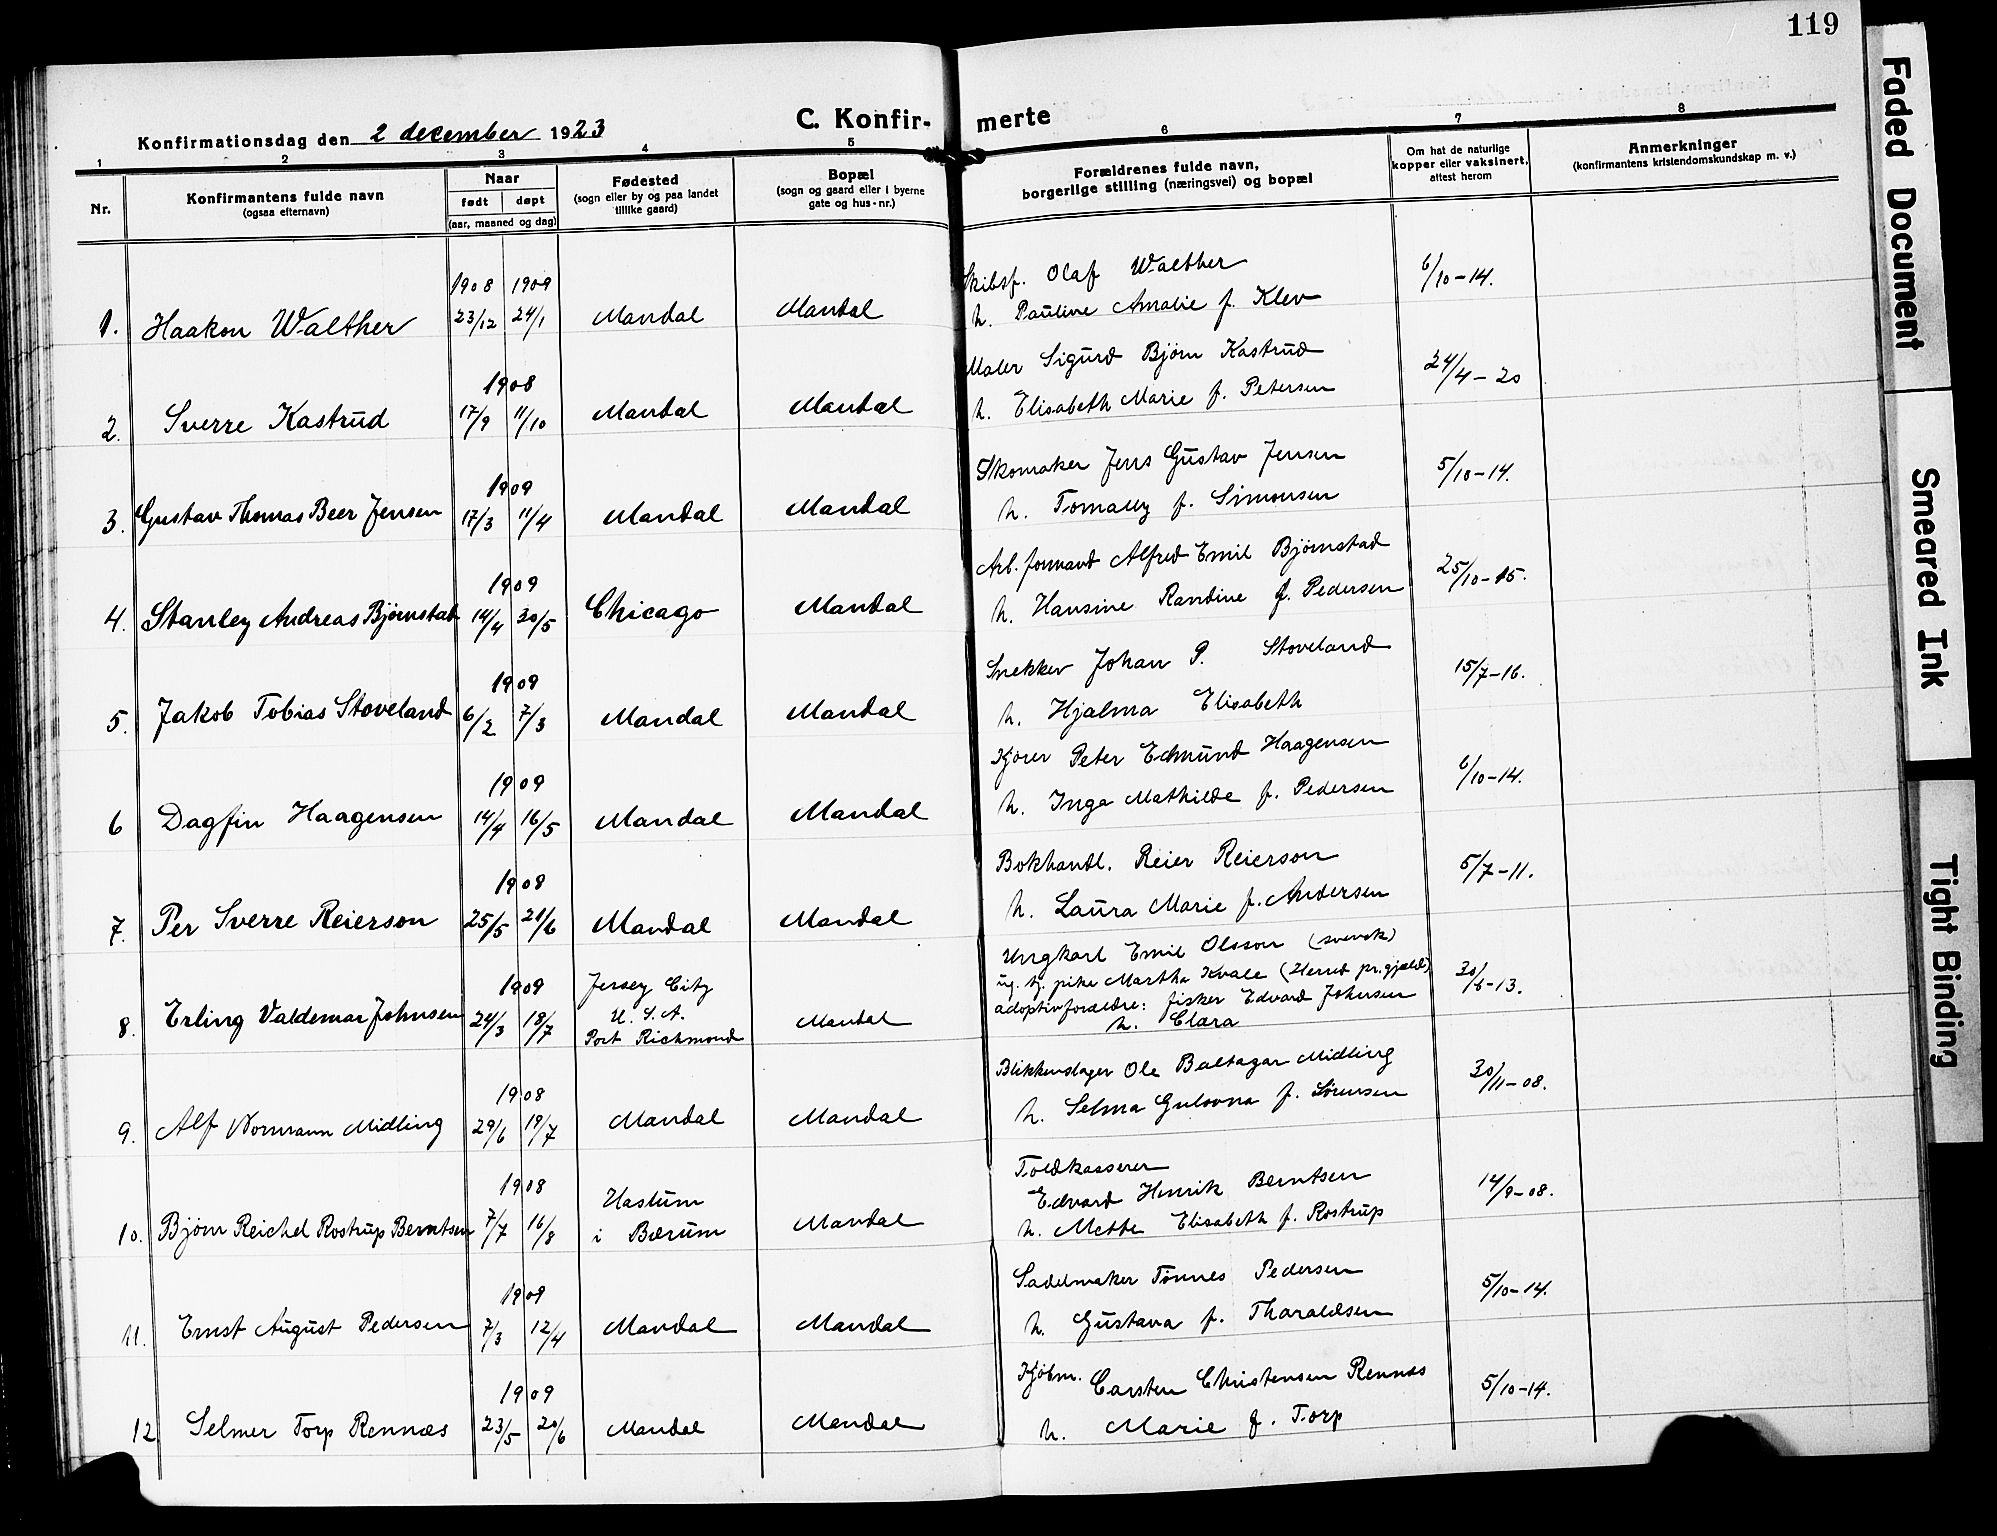 119
Konfirmationsdag den 2 december 1923
C. Konfirmerte
1 2 3 4 5 6 7 8
Nr.
Konfirmantens fulde navn
(ogsaa efternavn)
Naar
født døpt
(aar, maaned og dag)
Fødested
(sogn eller by og paa landet
tillike gaard)
Bopæl
(sogn og gaard eller i byerne
gate og hus-nr.)
Forældrenes fulde navn,
borgerlige stilling (næringsvei) og bopæl
Om hat de naturlige
kopper eller vaksinert,
attest herom
Anmerkninger
(konfirmantens kristendomskundskap m. v.)
1908 1909
1. Haakon Walther 23/12 24/1 Mandal Mandal
Skibsf. Olaf Walther
h. Pauline Amalie f. Klev
6/10-14.
1908
2. Sverre Kastrud 17/9 11/10 Mandal Mandal
Maler Sigurd Bjørn Kastrud
h. Elisabeth Marie f. Petersen
24/4-20
1909
3. Gustav Thomas Beer Jensen 17/3 11/4 Mandal Mandal
Skomaker Jens Gustav Jensen
h. Tomally f. Simonsen
5/10-14.
1909
4. Stanley Andreas Bjørnstad 14/4 30/5 Chicago Mandal
Arb. formand Alfred Emil Bjørnstad
h. Hansine Randine f. Pedersen
25/10-15.
1909
5. Jakob Tobias Stoveland 6/2 7/3 Mandal Mandal
Snekker Johan P. Stoveland
h. Hjalma Elisabeth
15/7-16.
1909
6 Dagfin Haagensen 14/4 16/5 Mandal Mandal
Kjører Peter Edmund Haagensen
h. Inga Mathilde f. Pedersen
6/10-14.
1908
7. Per Sverre Reierson 25/5 21/6 Mandal Mandal
Bokhandl. Reier Reierson
h. Laura Marie f. Andersen
5/7-11.
1909
8. Erling Valdemar Johnsen 24/3 18/7
Jersey City
U. S. A.
Port Richmond
Mandal
Ungkarl Emil Olsson (svensk)
ug. tj. pike Martha Kvale (Herred pr.gjæld)
adoptivforældre: fisker Edvard Johnsen
h. Clara
30/6-13.
1908
9. Alf Normann Midling 29/6 19/7 Mandal Mandal
Blikkenslager Ole Baltazar Midling
h. Selma Gulovna f. Sørensen
30/11-08.
1908
10. Bjørn Reichel Rostrup Berntsen 7/7 16/8
Haslum
i Bærum
Mandal
Toldkasserer
Edvard Henrik Berntsen
h. Mette Elisabeth f. Rostrup
14/9-08.
1909
11. Ernst August Pedersen 7/3 12/4 Mandal Mandal
Sadelmaker Tønnes Pedersen
h. Gustava f. Tharaldsen
5/10-14.
1909
12 Selmer Torp Rennæs 23/5 20/6 Mandal Mandal
Kjøbm. Carsten Christensen Rennæs
h. Marie f. Torp
5/10-14.
Faded Document
Smeared Ink
Tight Binding